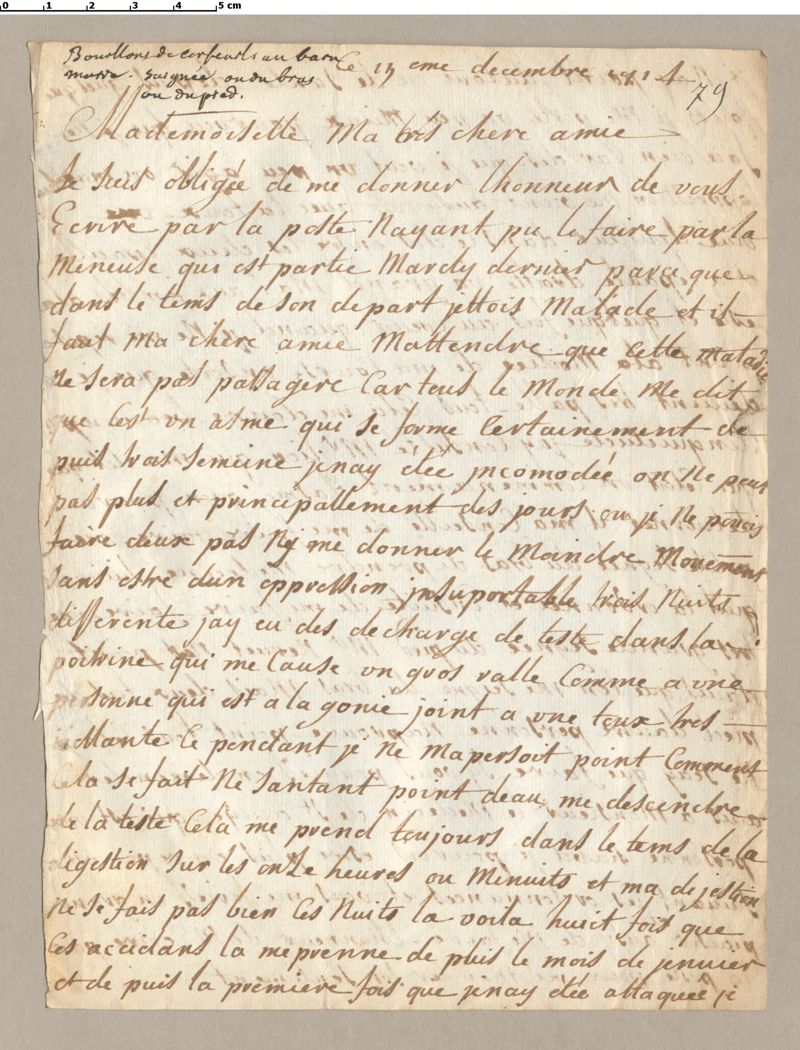 Bouillons de cerfeuils au bain
marie. Saignée ou du bras
ou du pied.
Ce eme decembre
79
Mademoiselle Ma trés chere amie
Je suis obligée de me donner lhonneur de vous
Ecrire par la poste Nayant pu le faire par la
Meneuse qui est partie Mardy dernier parce que
dans le tems de son depart jettois Malade et il
faut Ma chere amie Mattendre que cette maladie
Ne sera pas passagere Car tous le Monde Me dit
que Cest un asme qui se forme Certainement de
puis trois semeine jenay étée jncomodée on Ne peut
pas plus et principallement des jours ou je Ne pouvois
faire deux pas Ny me donner le Moindre Mouvement
sans estre dun oppression jnsuportable trois Nuits
differente jay eu des decharge de teste dans la
poitrine qui me Cause un gros ralle Comme a une
personne qui est a lagonie joint a une toux tres
Ce pendant je Ne mapersoit point Comment
Cela se fait Ne santant point deau me descendre
de la teste Cela me prend toujours dans le tems de la
digestion sur les onze heures ou Minuits et ma dijestion
Ne se fais pas bien Ces Nuits la voila huict fois que
Ces accidans la me prenne de puis le mois de jenvier
et de puis la premiere fois que jenay étée attaquée je